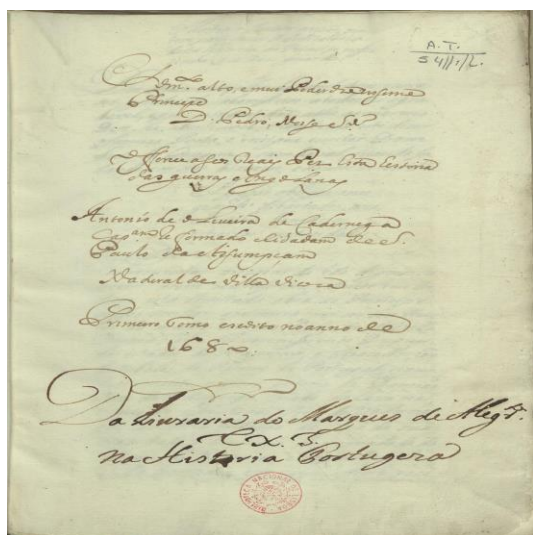 A.T.
5411/2.
alto, e mui Poderozo
Principe
D. Pedro, Nosso S.r
Reais Pes esta estoria
das guerras Angolanas
Antonio de oliveira de Cadornega
Cap.am Reformado e Cidadam de S.
Paulo da Assumpcam
Natural de villa vicoza
Primeiro tomo escrito no anno de
168
Da Liuraria do Marques de Aleg.te
na Historia Portugeza